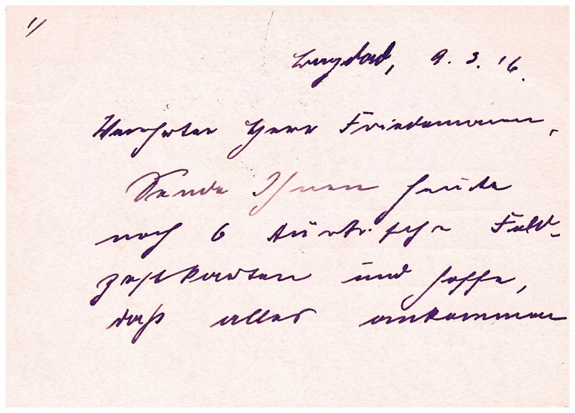 1/
Bagdad, 9. 3. 16.
Verehrter Herr Friedemann,
Sende Ihnen heute
noch 6 türkische Feld-
postkarten und hoffe,
daß alles ankommen